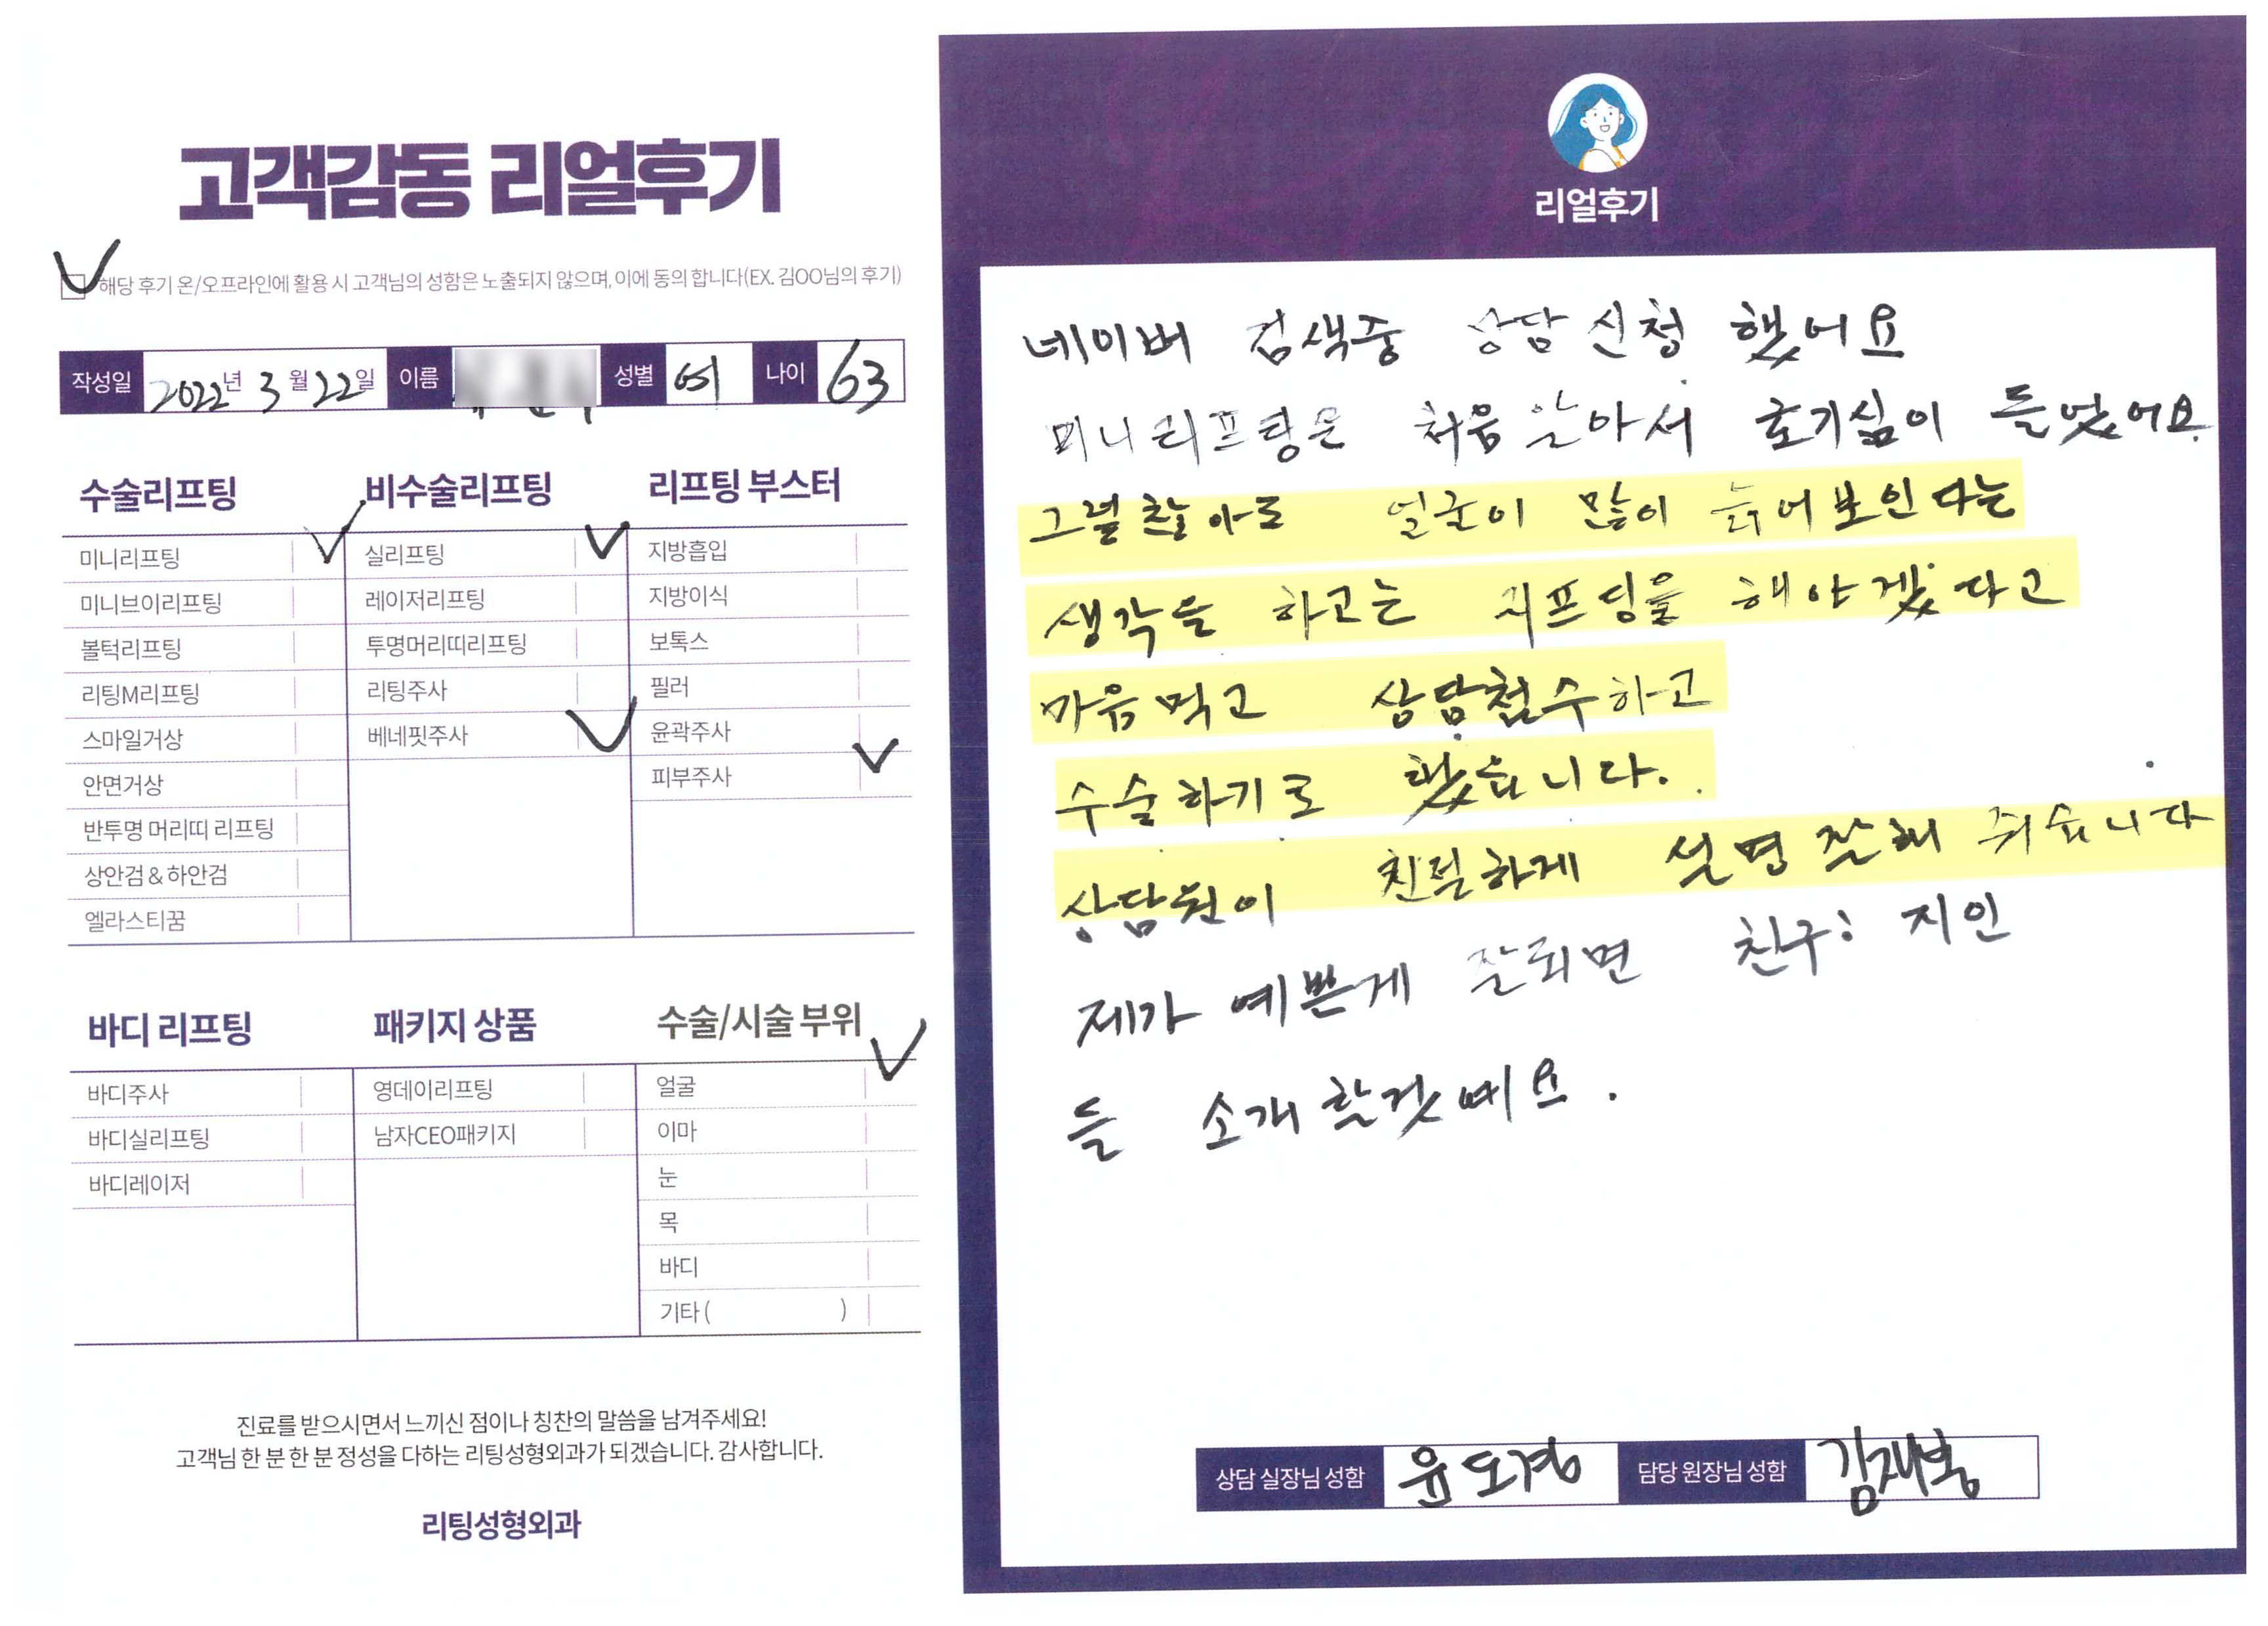 고객감동 리얼후기
해당 후기 온/오프라인에 활용 시 고객님의 성함은 노출되지 않으며, 이에 동의 합니다(EX. 김OO님의 후기)
작성일 2022년 3월 22일 이름 성별 여 나이 63
수술리프팅 비수술리프팅 리프팅 부스터
미니리프팅 실리프팅 지방흡입
미니브이리프팅 레이저리프팅 지방이식
볼턱리프팅 투명머리띠리프팅 보톡스
리팅M리프팅 리팅주사 필러
스마일거상 베네핏주사 윤곽주사
안면거상 피부주사
반투명 머리띠 리프팅
상안검 & 하안검
엘라스티꿈
바디 리프팅 패키지 상품 수술/시술 부위
바디주사 영데이리프팅 얼굴
바디실리프팅 남자CEO패키지 이마
바디레이저 눈
목
바디
기타 ( )
진료를 받으시면서 느끼신 점이나 칭찬의 말씀을 남겨주세요!
고객님 한 분 한 분 정성을 다하는 리팅성형외과가 되겠습니다. 감사합니다.
리팅성형외과
리얼후기
네이버 검색중 상담 신청 했어요
미니리프팅은 처음 알아서 호기심이 들었어요
얼굴이 많이 늙어보인다는
생각을 하고는 리프팅을 해야겠다고
마음먹고 상담접수하고
수술하기로 했습니다.
상담원이 친절하게 설명 잘해 줘습니다
제가 예쁜게 잘되면 친구: 지인
들 소개 할겻예요.
상담 실장님 성함 윤도경 담당 원장님 성함 김재봉